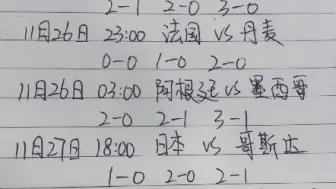 2-1 2-0 3-0
11月26日 23:00 法国 VS 丹麦
0-0 1-0 2-0
11月26日 03:00 阿根廷 VS 墨西哥
2-0 2-1 3-1
11月27日 18:00 日本 VS 哥斯达
1-0 2-0 2-1